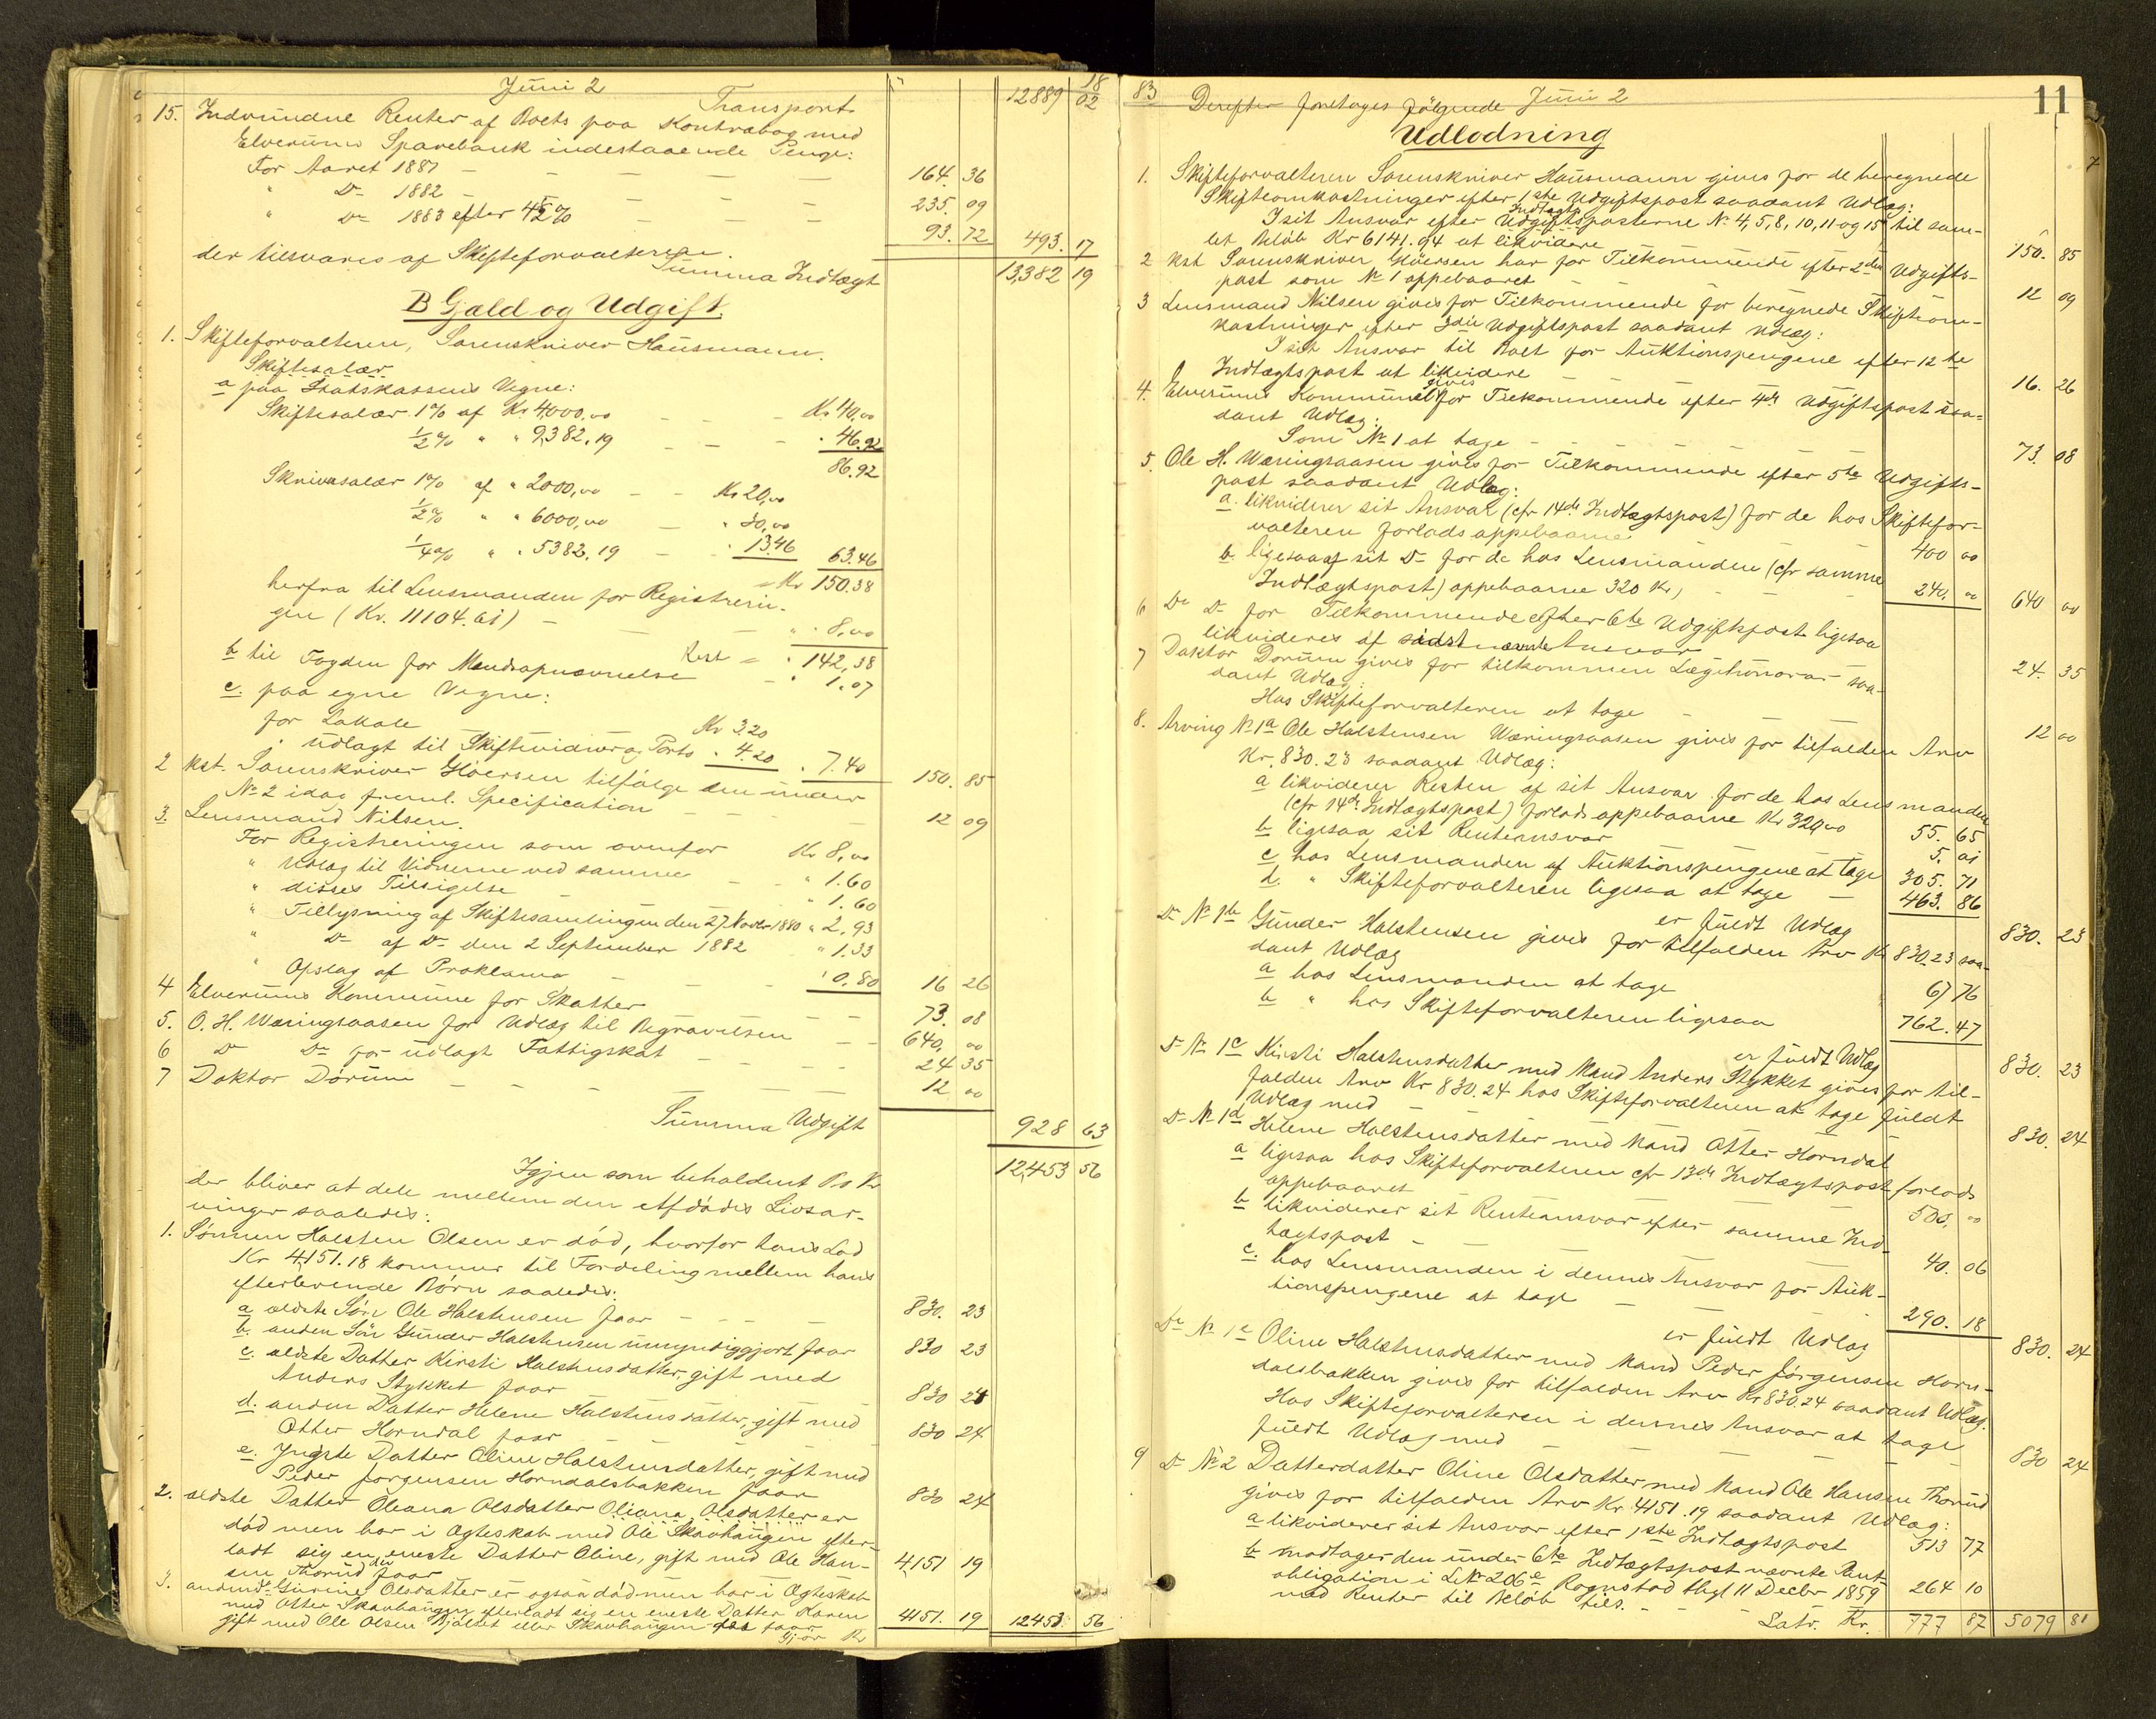 Juni 2
18
Transport 12889 02
15. Indvundne Renter af Boets paa Kontrabog med
Elverums Sparebank indestaaende Penge:
For Aaret 1881 - - - - 164. 36
" Do 1882 - - - - 235. 09
" Do 1883 efter 4½ % - - - 93. 72 493. 17
der tilsvares af Skifteforvalteren.
Summa Indtægt 13,382 19
B Gjæld og Udgift.
1. Skifteforvalteren, Sorenskriver Hausmann.
Skiftesalær
a paa Statskassens Vegne:
Skiftesalær 1 % af Kr 4000,00 - - Kr 40,00
½ % " " 9,382.19 - - " 46.92
86.92
Skriversalær 1 % af " 2000,00 - - Kr 20,00
½ % " " 6000,00 - " 30,00
¼ % " " 5382.19 - " 13.46 63.46
= Kr 150.38
herfra til Lensmanden for Registrerin-
gen (Kr. 11104.61) - - - " 8,00
Rest = " 142,38
b til Fogden for Mandsopnævnelse - " 1.07
c. paa egne Vegne:
for Lokale Kr 3.20
" Udlagt til Skiftevidner og Porto " 4.20 " 7.40 150. 85
2 Kst. Sorenskriver Gløersen tilfølge den under
No 2 idag freml. Specification - - - 12 09
3. Lensmand Nilsen.
For Registreringen som ovenfor Kr 8,00
" Udlæg til Vidnerne ved samme - - " 1.60
" disses Tilsigelse " 1.60
" Tillysning af Skiftesamlingen den 27 Novbr 1880 " 2,93
" Do af Do den 2 September 1882 " 1.33
" Opslag af Proklama - - - " 0.80 16 26
4 Elverums Kommune for Skatter - - 73. 08
5. O. H. Wæringsaasen for Udlæg til Begravelsen - - 640, 00
6 Do Do for udlagt Fattigskat - - - 24 35
7 Doktor Dørum - - - - 12 00
Summa Udgift 928 63
Igjen som beholdent Bo Kr 12,453 56
der bliver at dele mellem den afdødes Livsar-
vinger saaledes:
1. Sønnen Halsten Olsen er død, hvorfor hans Lod
Kr 4,151.18 kommer til Fordeling mellem hans
efterlevende Børn saaledes:
a ældste Søn Ole Halstensen faar - - - 830. 23
b. anden Søn Gunder Halstensen umyndiggjort faar 830 23
c. ældste Datter Kirsti Halstensdatter, gift med
Anders Stykket faar 830 24
d. anden Datter Helene Halstensdatter, gift med
Otter Horndal faar 830 24
e. Yngste Datter Oline Halstensdatter, gift med
Peder Jørgensen Horndalsbakken faar 830 24
2. ældste Datter Oleana Olsdatter Oliana Olsdatter er
død men har i Ægteskab med Ole Skavhaugen efter-
ladt sig en eneste Datter Oline, gift med Ole Han-
sen Thorud der faar 4151 19
3. anden Do Gurine Olsdatter er ogsaa død men har i Ægteskab
med Otter Skavhaugen efterladt sig en eneste Datter Karen
gift med Ole Olsen Bjølset eller Skavhaugen faar 4151. 19 12453 56
Gjør Kr
83 Derefter foretoges følgende Juni 2 11
Udlodning
1. Skifteforvalteren Sorenskriver Hausmann gives for de beregnede
Skifteomkostninger efter 1ste Udgiftspost saadant Udlæg:
I sit Ansvar efter Udgiftsposterne Indtægts No 4, 5, 8, 10, 11 og 15 til sam-
let Beløb Kr 6141.94 at likvidere 150. 85
2 Kst Sorenskriver Gløersen har for Tilkommende efter 2den Udgifts-
post som No 1 oppebaaret 12 09
3 Lensmand Nilsen gives for Tilkommende for beregnede Skifteom-
kostninger efter 3die Udgiftspost saadant Udlæg:
I sit Ansvar til Boet for Auktionspengene efter 12te
Indtægtspost at likvidere 16. 26
4. Elverums Kommune gives for Tilkommende efter 4de Udgiftspost saa-
dant Udlæg:
Som No 1 at tage - - - 73. 08
5. Ole H. Wæringsaasen gives for Tilkommende efter 5te Udgifts-
post saadant Udlæg:
a. likviderer sit Ansvar (cfr 14de Indtægtspost) for de hos Skiftefor-
valteren forlods oppebaarne 400 00
b. ligesaa af sit Do for de hos Lensmanden (cfr samme
Indtægtspost) oppebaarne 320 Kr, 240. 00 640 00
6 Do Do for Tilkommende efter 6te Udgiftspost ligesaa
likvideres af sidstnævnte Ansvar 24. 35
7 Doktor Dørum gives for tilkommen Lægehonorar saa-
dant Udlæg:
Hos Skifteforvalteren at tage - 12 00
8. Arving No 1a Ole Halstensen Wæringsaasen gives for tilfalden Arv
Kr. 830.23 saadant Udlæg:
a likviderer Resten af sit Ansvar for de hos Lensmanden
(cfr 14de Indtægtspost) forlods oppebaarne Kr 320,00 55. 65
b ligesaa sit Renteansvar 5. 01
c hos Lensmanden af Auktionspengene at tage 305. 71
d. " Skifteforvalteren ligesaa at tage - 463. 86
er fuldt Udlæg 830. 23
Do No 1b Gunder Halstensen gives for tilfalden Arv Kr 830.23 saa-
dant Udlæg
a hos Lensmanden at tage 67 76
b " hos Skifteforvalteren ligesaa 762. 47
er fuldt Udlæg 830. 23
Do No 1c Kirsti Halstensdatter med Mand Anders Stykket gives for til-
falden Arv Kr 830.24 hos Skifteforvalteren at tage fuldt
Udlæg med - - - 830. 24
Do No 1d Helene Halstensdatter med Mand Otter Horndal
a ligesaa hos Skifteforvalteren cfr 13de Indtægtspost forlods
oppebaaret 500, 00
b likviderer sit Renteansvar efter samme Ind-
tægtspost - 40. 06
c. hos Lensmanden i dennes Ansvar for Auk-
tionspengene at tage - - 290. 18
er fuldt Udlæg 830. 24
Do No 1e Oline Halstensdatter med Mand Peder Jørgensen Horn-
dalsbakken gives for tilfalden Arv Kr 830.24 saadant Udlæg.
Hos Skifteforvalteren i dennes Ansvar at tage
fuldt Udlæg med - - - 830 24
9 Do No 2 Datterdatter Oline Olsdatter med Mand Ole Hansen Thorud
gives for tilfalden Arv Kr. 4151.19 saadant Udlæg:
a likviderer sit Ansvar efter 1ste Indtægtspost 513 77
b modtager den under 6te Indtægtspost nævnte Pant-
obligation i LNo 206e Rognstad thgl 11 Decbr 1859
med Renter til Beløb tils. - - 264 10
Latr. Kr. 777 87 5079 81